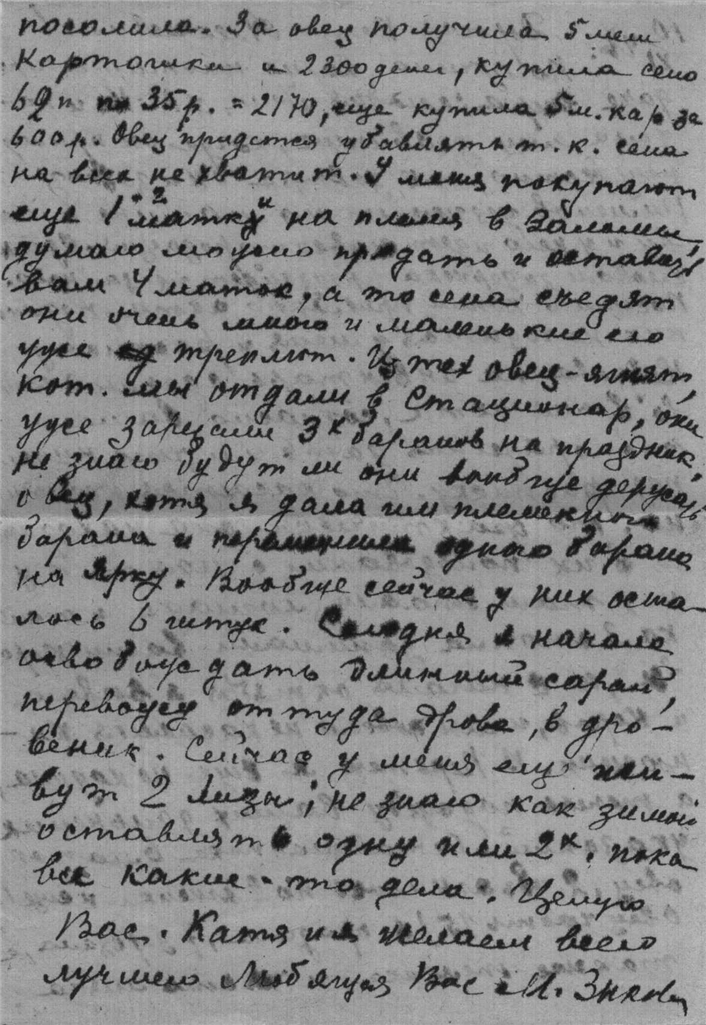 посолила. За овец получила 5 меш
картошки и 2300 денег, купила сено
62 п по 35 р. = 2170, еще купила 5 м. кар за
600 р. Овец придется убавлять т. к. сена
на всех не хватит. У меня покупают
еще 1-2 матки на племя в
думаю можно продать и оставить
вам 4 маток, а то сена съедят
они очень много и маленькие его
уже треплют. Из тех овец-ягнят,
кот. мы отдали в Стационар, они
уже зарезали 3х баранов на праздник,
не знаю будут ли они вообще держать
овец, хотя я дала им племенного
барана и переменила одного барана
на ярку. Вообще сейчас у них оста-
лось 6 штук. Сегодня я начала
освобождать длинный сарай,
перевожу оттуда дрова, в дро-
веник. Сейчас у меня ещ жи-
вут 2 Лизы; не знаю как зимой
оставлять одну или 2х, пока
все какие-то дела. Целую
Вас. Катя и я желаем всего
лучшего Любящая Вас М.